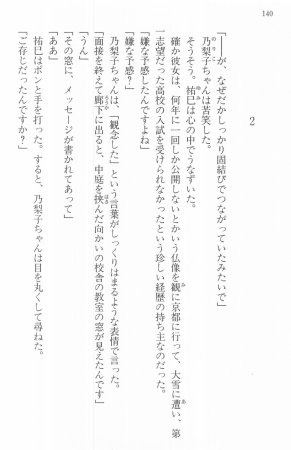 140
2
「――が、なぜだかしっかり固結びでつながっていたみたいで」
乃梨子ちゃんは苦笑した。
そうそう。祐巳は心の中でうなずいた。
確か彼女は、何年に一回しか公開しないとかいう仏像を観に京都に行って、大雪に遭い、第
一志望だった高校の入試を受けられなかったという珍しい経歴の持ち主なのだった。
「嫌な予感したんですよね」
「嫌な予感?」
乃梨子ちゃんは、「観念した」という言葉がしっくりはまるような表情で言った。
「面接を終えて廊下に出ると、中庭を挟んだ向かいの校舎の教室の窓が見えたんです」
「うん」
「その窓に、メッセージが書かれてあって」
「ああ」
祐巳はポンと手を打った。すると、乃梨子ちゃんは目を丸くして尋ねた。
「ご存じだったんですか?」